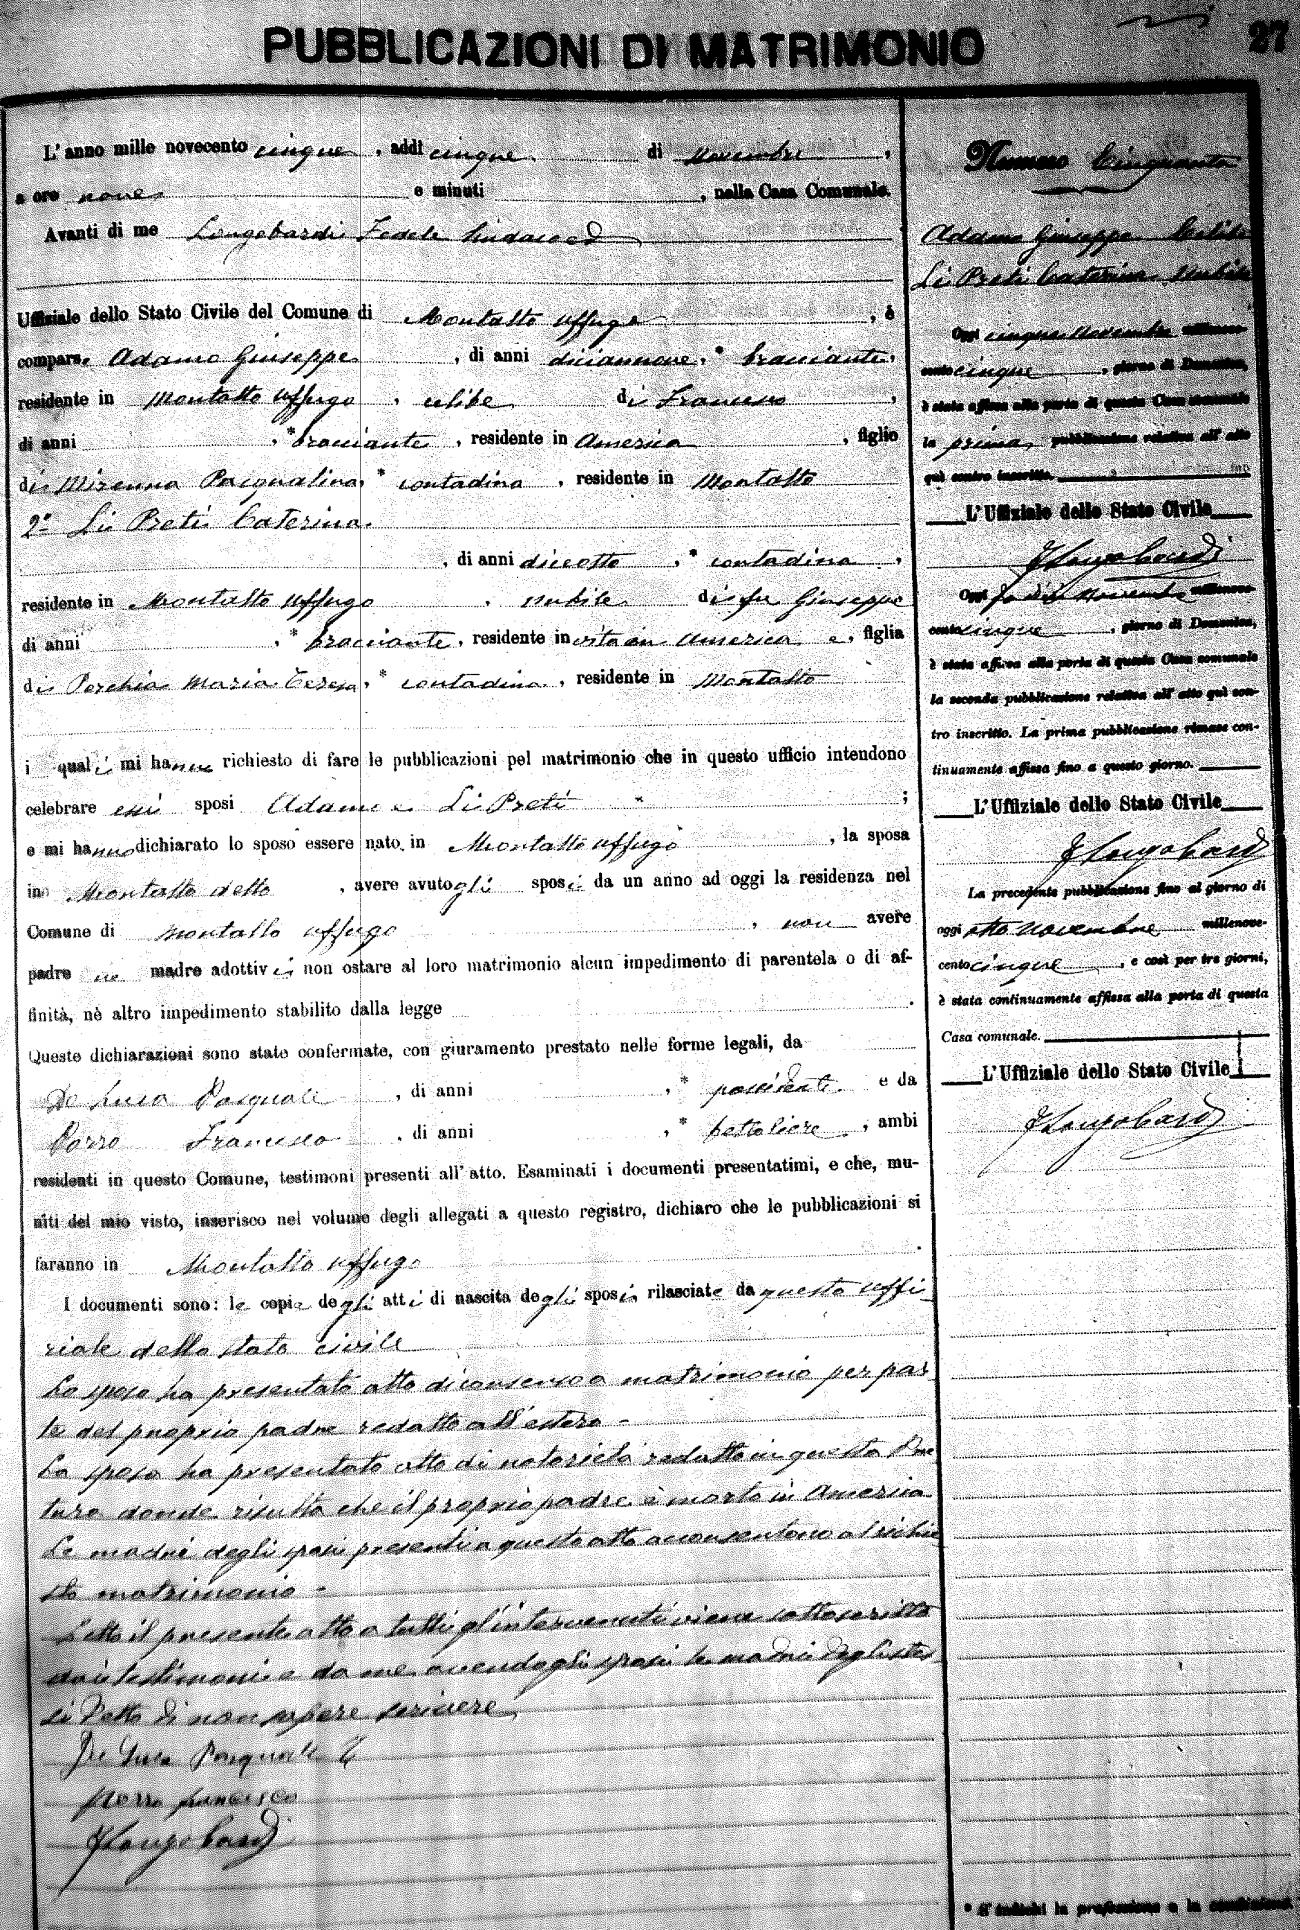 27
PUBBLICAZIONI DI MATRIMONIO
L'anno mille novecento cinque, addì cinque di novembre,
a ore nove e minuti , nella Casa Comunale.
Avanti di me Longobardi Fedele Sindaco ed
Uffiziale dello Stato Civile del Comune di Montalto Uffugo, è
compars Adamo Giuseppe, di anni diciannove, * bracciante,
residente in Montalto Uffugo, celibe di Francesco,
di anni , * bracciante, residente in America, figlio
di Mirenna Pasqualina, * contadina, residente in Montalto
2° Li Preti Caterina.
, di anni diciotto, * contadina,
residente in Montalto Uffugo, nubile di fu Giuseppe
di anni , * bracciante, residente in vita in America e, figlia
di Perchia Maria Teresa, * contadina, residente in Montalto
i quali mi hanno richiesto di fare le pubblicazioni pel matrimonio che in questo ufficio intendono
celebrare essi sposi Adamo e Li Preti ;
e mi hanno dichiarato lo sposo essere nato in Montalto Uffugo, la sposa
in Montalto detto, avere avuto gli sposi da un anno ad oggi la residenza nel
Comune di Montalto Uffugo, non avere
padre ne madre adottivi non ostare al loro matrimonio alcun impedimento di parentela o di af-
finità, nè altro impedimento stabilito dalla legge .
Queste dichiarazioni sono state confermate, con giuramento prestato nelle forme legali, da
De Luca Pasquale, di anni , * possidente e da
Porro Francesco, di anni , * bettoliere, ambi
residenti in questo Comune, testimoni presenti all'atto. Esaminati i documenti presentatimi, e che, mu-
niti del mio visto, inserisco nel volume degli allegati a questo registro, dichiaro che le pubblicazioni si
faranno in Montalto Uffugo.
I documenti sono: le copie degli atti di nascita degli sposi rilasciate da questo uffi-
ziale dello stato civile
Lo sposo ha presentato atto di consenso a matrimonio per par
te del proprio padre redatto all'estero -
La sposa ha presentato atto di notorietà redatto in questa Pre
tura donde risulta che il proprio padre è morto in America
Le madri degli sposi presenti a questo atto acconsentono al richie
sto matrimonio -
Letto il presente atto a tutti gl'intervenuti viene sottoscritto
dai testimoni e da me avendo gli sposi le madri degli stes
si detto di non sapere scrivere
De Luca Pasquale
Porro francesco
FLongobardi
Numero Cinquanta
Adamo Giuseppe Celibe
Li Preti Caterina Nubile
Oggi cinque Novembre millenove-
cento cinque, giorno di Domenica,
è stata affissa alla porta di questa Casa comunale
la prima pubblicazione relativa all'atto
quì contro inscritto.
L'Uffiziale dello Stato Civile
FLongobardi
Oggi Novembre millenove-
cento cinque, giorno di Domenica,
è stata affissa alla porta di questa Casa comunale
la seconda pubblicazione relativa all'atto quì con-
tro inscritto. La prima pubblicazione rimase con-
tinuamente affissa fino a questo giorno.
L'Uffiziale dello Stato Civile
FLongobardi
La precedente pubblicazione fino al giorno di
oggi otto Novembre millenove-
cento cinque, e così per tre giorni,
è stata continuamente affissa alla porta di questa
Casa comunale.
L'Uffiziale dello Stato Civile
FLongobardi
* S'indichi la professione o la condizione.